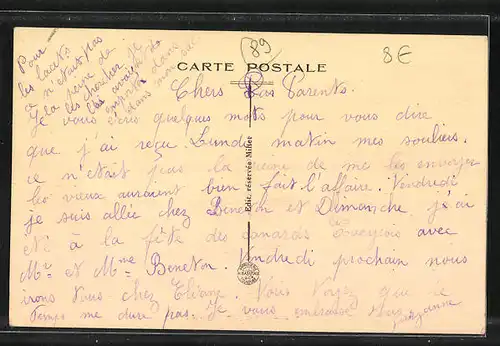 Pour
les lacets
ce n'était pas
la peine de
les chercher je
les avais
emportés dans
dans mon sac.
89
8€
CARTE POSTALE
Chers Parents.
Je vous écris quelques mots pour vous dire
que j'ai reçu Lundi matin mes souliers.
ce n'était pas la peine de me les envoyer
les vieux auraient bien fait l'affaire. Vendredi
je suis allée chez Beneton et Dimanche j'ai
été à la fête des canards avec
Mr et Mme Beneton. Vendredi prochain nous
irons tous chez Vous voyez que le
temps me dure pas. Je vous embrasse
Suzanne
Edit. réservés Millet